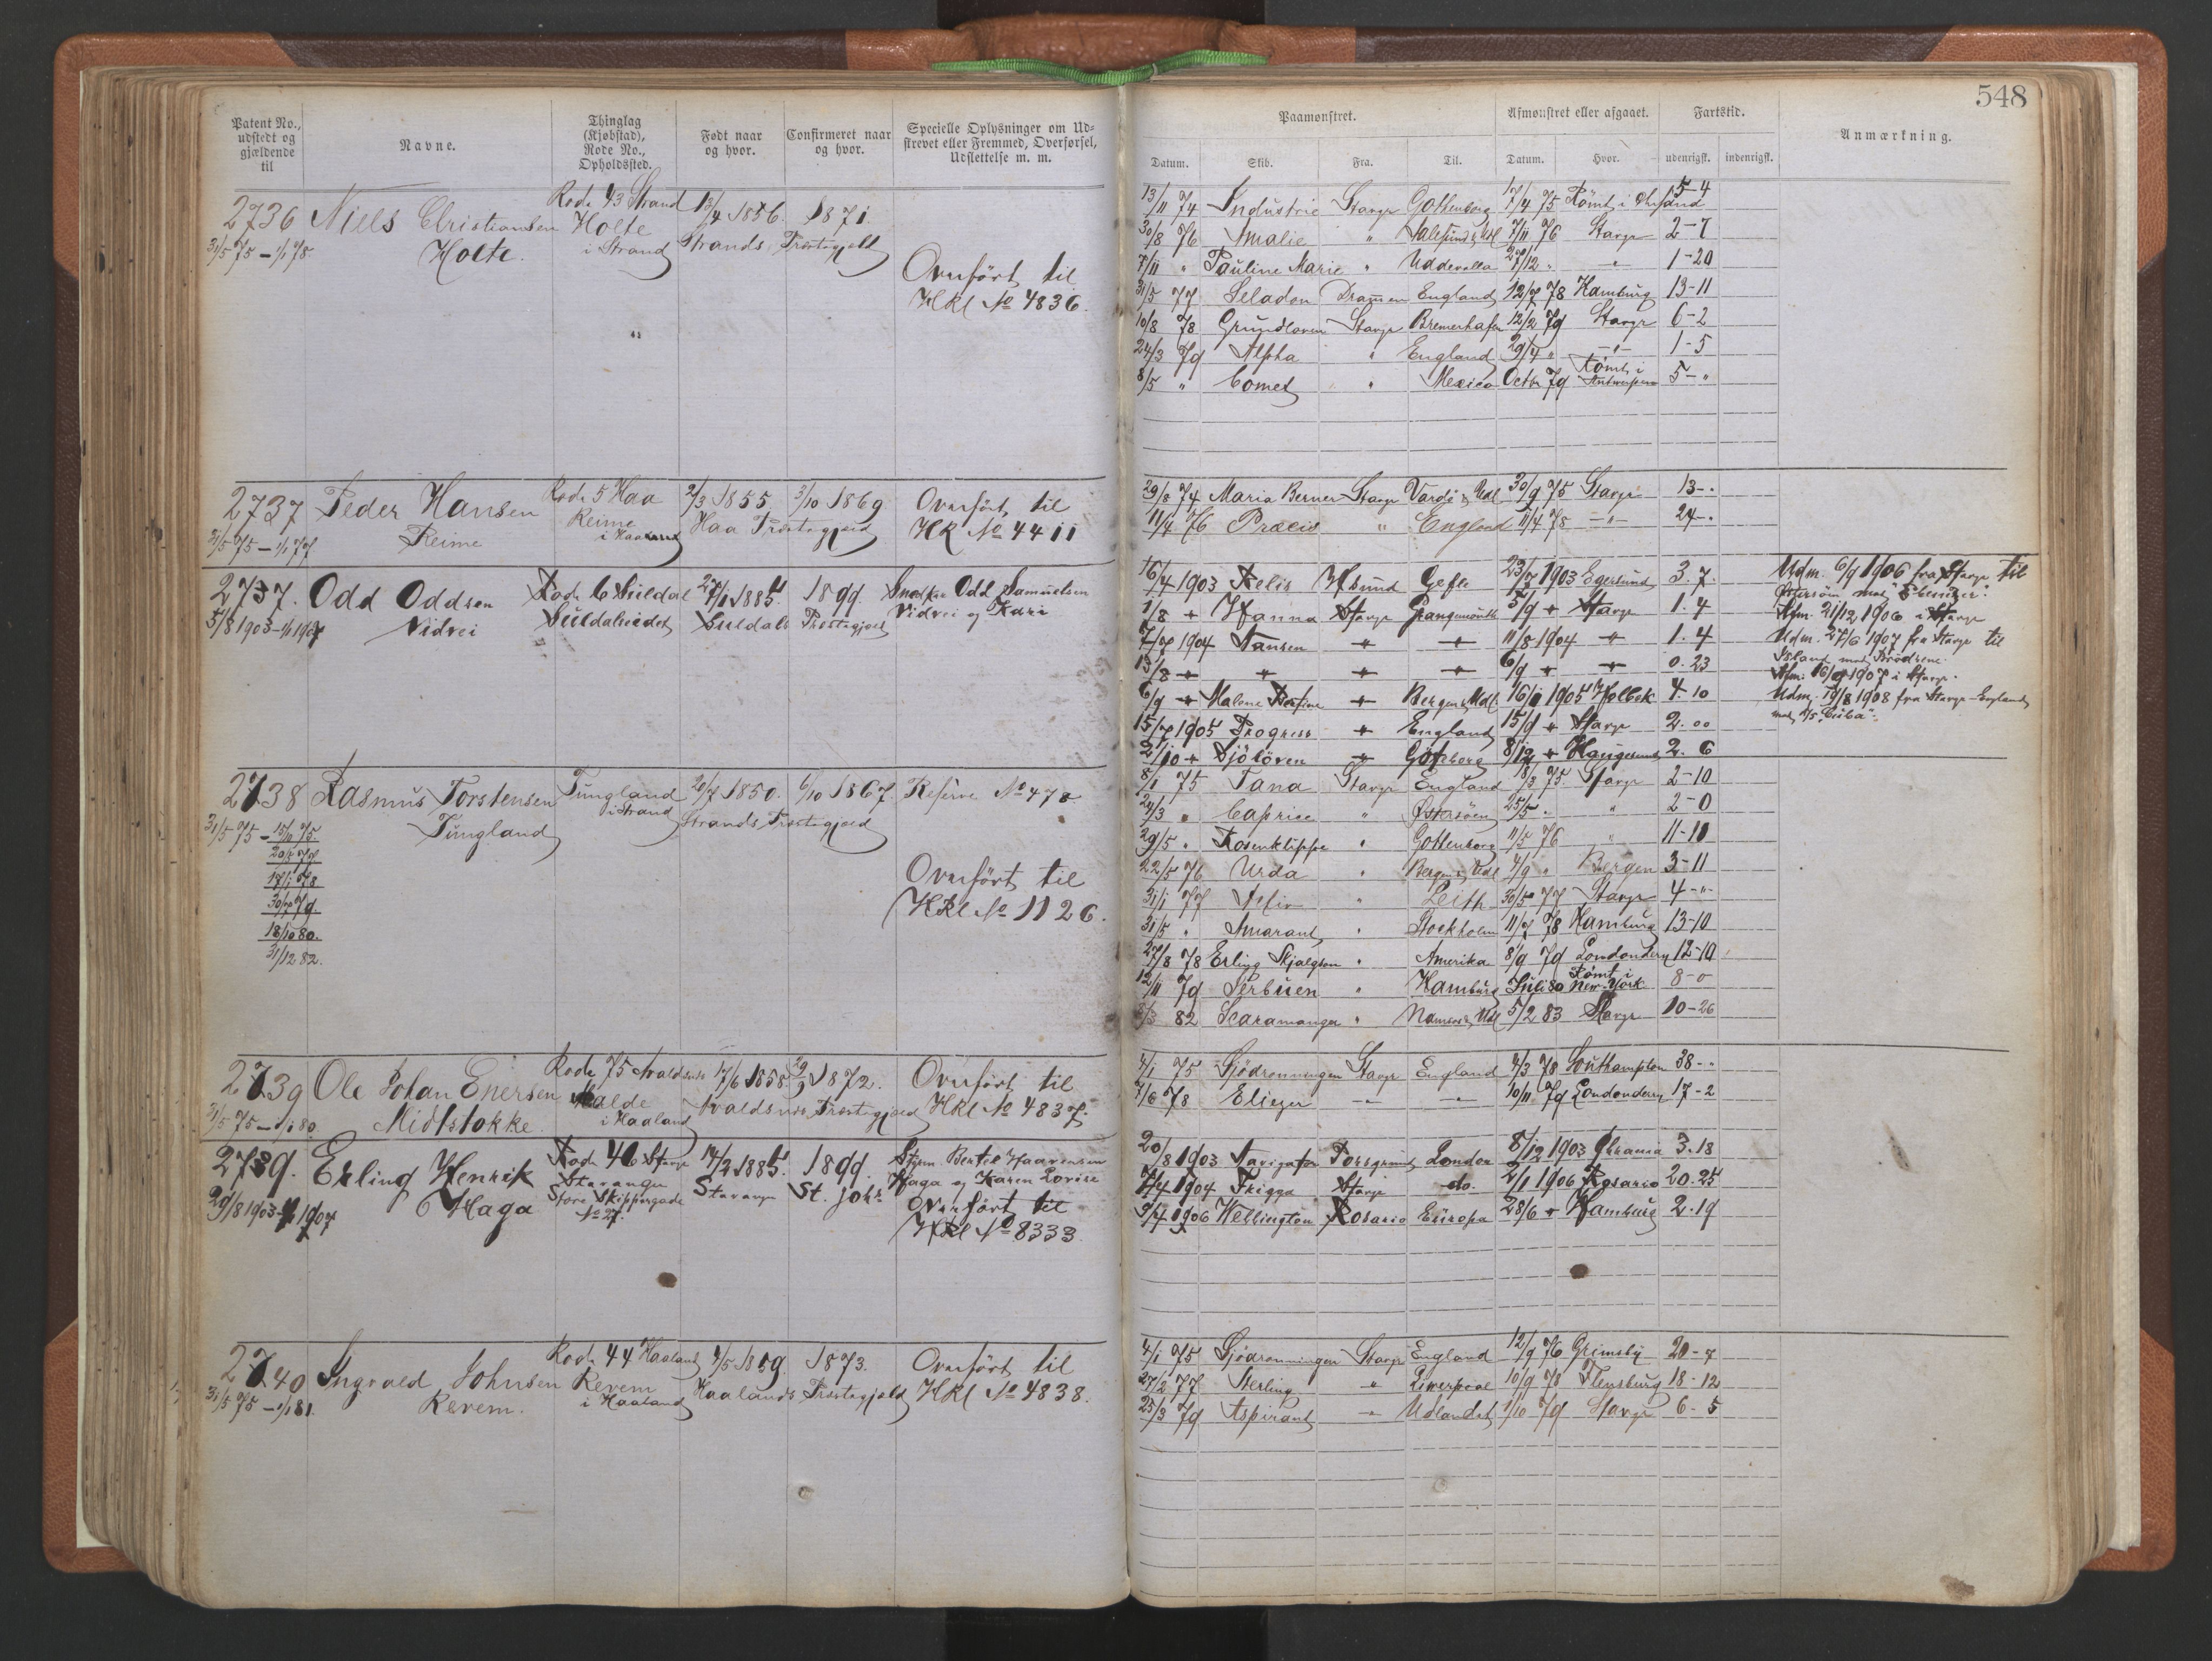 548
Patent No., udstedt og gjældende til
Navne.
Thinglag (Kjøbstad), Rode No., Opholdssted.
Født naar og hvor.
Confirmeret naar og hvor.
Specielle Oplysninger om Udstrevet eller Fremmed, Overførsel, Udslettelse m. m.
Paamønstret.
Afmønstret eller afgaaet.
Fartstid.
Anmærkning.
Datum. Skib. Fra. Til. Datum. Hvor. udenrigsk. indenrigsk.
2736 Niels Christiansen Rode 43 Strand 13/4 1856. 1871.
31/5 75 – 1/1 78. Holte. Holte i Strand Strands Præstegjeld
Overført til
HKl No 4836.
13/11 74 Industrie Stavgr Gothenborg 17/4 75 Rømt i 5-4
30/8 76 Amalie " Aalesund & Udl 7/11 76 Stavgr 2-7
7/11 " Pauline Marie " Uddevalla 27/12 " " 1-20
31/5 77 Seladon Drammen England 12/7 78 Hamburg 13-11
10/8 78 Grundloven Stavgr Bremerhafen 12/2 79 Stavgr 6-2
24/3 79 Alpha " England 29/4 " " 1-5
8/5 " Comet " Mexico Octbr 79 Rømt i Antwerpen 5-"
2737 Peder Hansen Rode 5 Haa 2/3 1855. 3/10 1869 Overført til
31/5 75 – 1/1 77 Reime Reime i Haaland Haa Præstegjeld HKl No 4411
29/8 74 Maria Berner Stavgr Vardø & Udl 30/9 75 Stavgr 13-.
11/4 76 Præcis " England 11/4 78 " 24-.
2737. Odd Oddsen Rode 6 Suldal 27/1 1885. 1899. Snedker Odd Samuelsen
5/8 1903 – 1/1 1907 Vidvei Suldalseidet Suldals Præstegjeld Vidvei og Kari
16/4 1903 Felis Hsund Gefle 23/7 1903 Egersund 3. 7.
1/8 " Hanna Stavgr Grangemouth 5/9 " Stavgr 1. 4
7/7 1904 Nansen " " 11/8 1904 " 1. 4
13/8 " " " " 6/9 " " 0. 23
6/9 " Malene " Bergen & Udl. 16/1 1905 Holbek 4. 10
15/7 1905 Progress " England 15/9 " Stavgr 2. 00
2/10 " Sjöloven " Göteborg 8/12 " Haugesund 2. 6
Udm. 6/9 1906 fra Stavgr til
Østersøen med
Afm. 21/12 1906 i Stavgr
Udm. 27/6 1907 fra Stavgr til
Island med Brødrene.
Afm. 16/9 1907 i Stavgr.
Udm. 19/8 1908 fra Stavgr - England
med S/S "Cuba".
2738 Rasmus Torstensen Tungland i Strand 20/7 1850. 6/10 1867. Reserve No 478
31/5 75 – 15/10 75. Tungland Strands Præstegjeld
20/5 77
17/1 78
30/7 79.
18/10 80.
31/12 82.
Overført til
HKl No 1126.
8/1 75 Tana Stavgr England 18/3 75 Stavgr 2-10
24/3 " Caprice " Østersøen 25/5 " " 2-0
29/5 " Rosenklippe " Gothenborg 11/5 76 " 11-11
22/5 76 Urda " Bergen & Udl 4/9 " Bergen 3-11
31/1 77 Alfir " Leith 30/5 77 Stavgr 4-"
31/5 " Amarant " Stockholm 11/7 78 Hamburg 13-10
27/8 78 Erling Skjalgson " Amerika 8/9 79 Londonderry 12-10
12/11 79 Serbuen " Hamburg Juli 80 Rømt i New-York 8-0
82 Scaramanga " Namsos & Udl 5/2 83 Stavgr 10-26
2739 Ole Johan Enersen Rode 75 Avaldsnes 17/6 1858 29/9 1872. Overført til
31/5 75 – 1/1 80. Midtstokke. Malde i Haaland Avaldsnes Præstegjeld HKl No 4837.
4/1 75 Sjødronningen Stavgr England 4/3 78 Southampton 38-.
7/6 78 Eliezer " " 10/11 79 Londonderry 17-2
2739. Erling Henrik Rode 46 Stavgr 14/2 1885. 1899. Styrm. Bertel Haavorsen
29/8 1903 – 1/1 1907 Haga Stavanger Store Skippergade No 27. Stavanger St. Joh. Haga og Karen Lovise
Overført til
HKl No 8333.
20/8 1903 Navigator Porsgrund London 8/12 1903 Chrania 3. 18
7/4 1904 Frigga Stavgr do. 2/1 1906 Rosario 20. 25
9/4 1906 Wellington Rosario Europa 28/6 " Hamburg 2. 19
2740 Ingvald Johnsen Rode 44 Haaland 4/5 1859. 1873. Overført til
31/5 75 – 1/1 81. Revem. Revem i Haaland Haalands Præstegjeld HKl No 4838.
4/1 75 Sjødronningen Stavgr England 12/9 76 Grimsby 20-7
27/2 77 Sterling " Liverpool 10/9 78 Flensburg 18-12
25/3 79 Aspirant " Udlandet 1/10 79 Stavgr 6-5